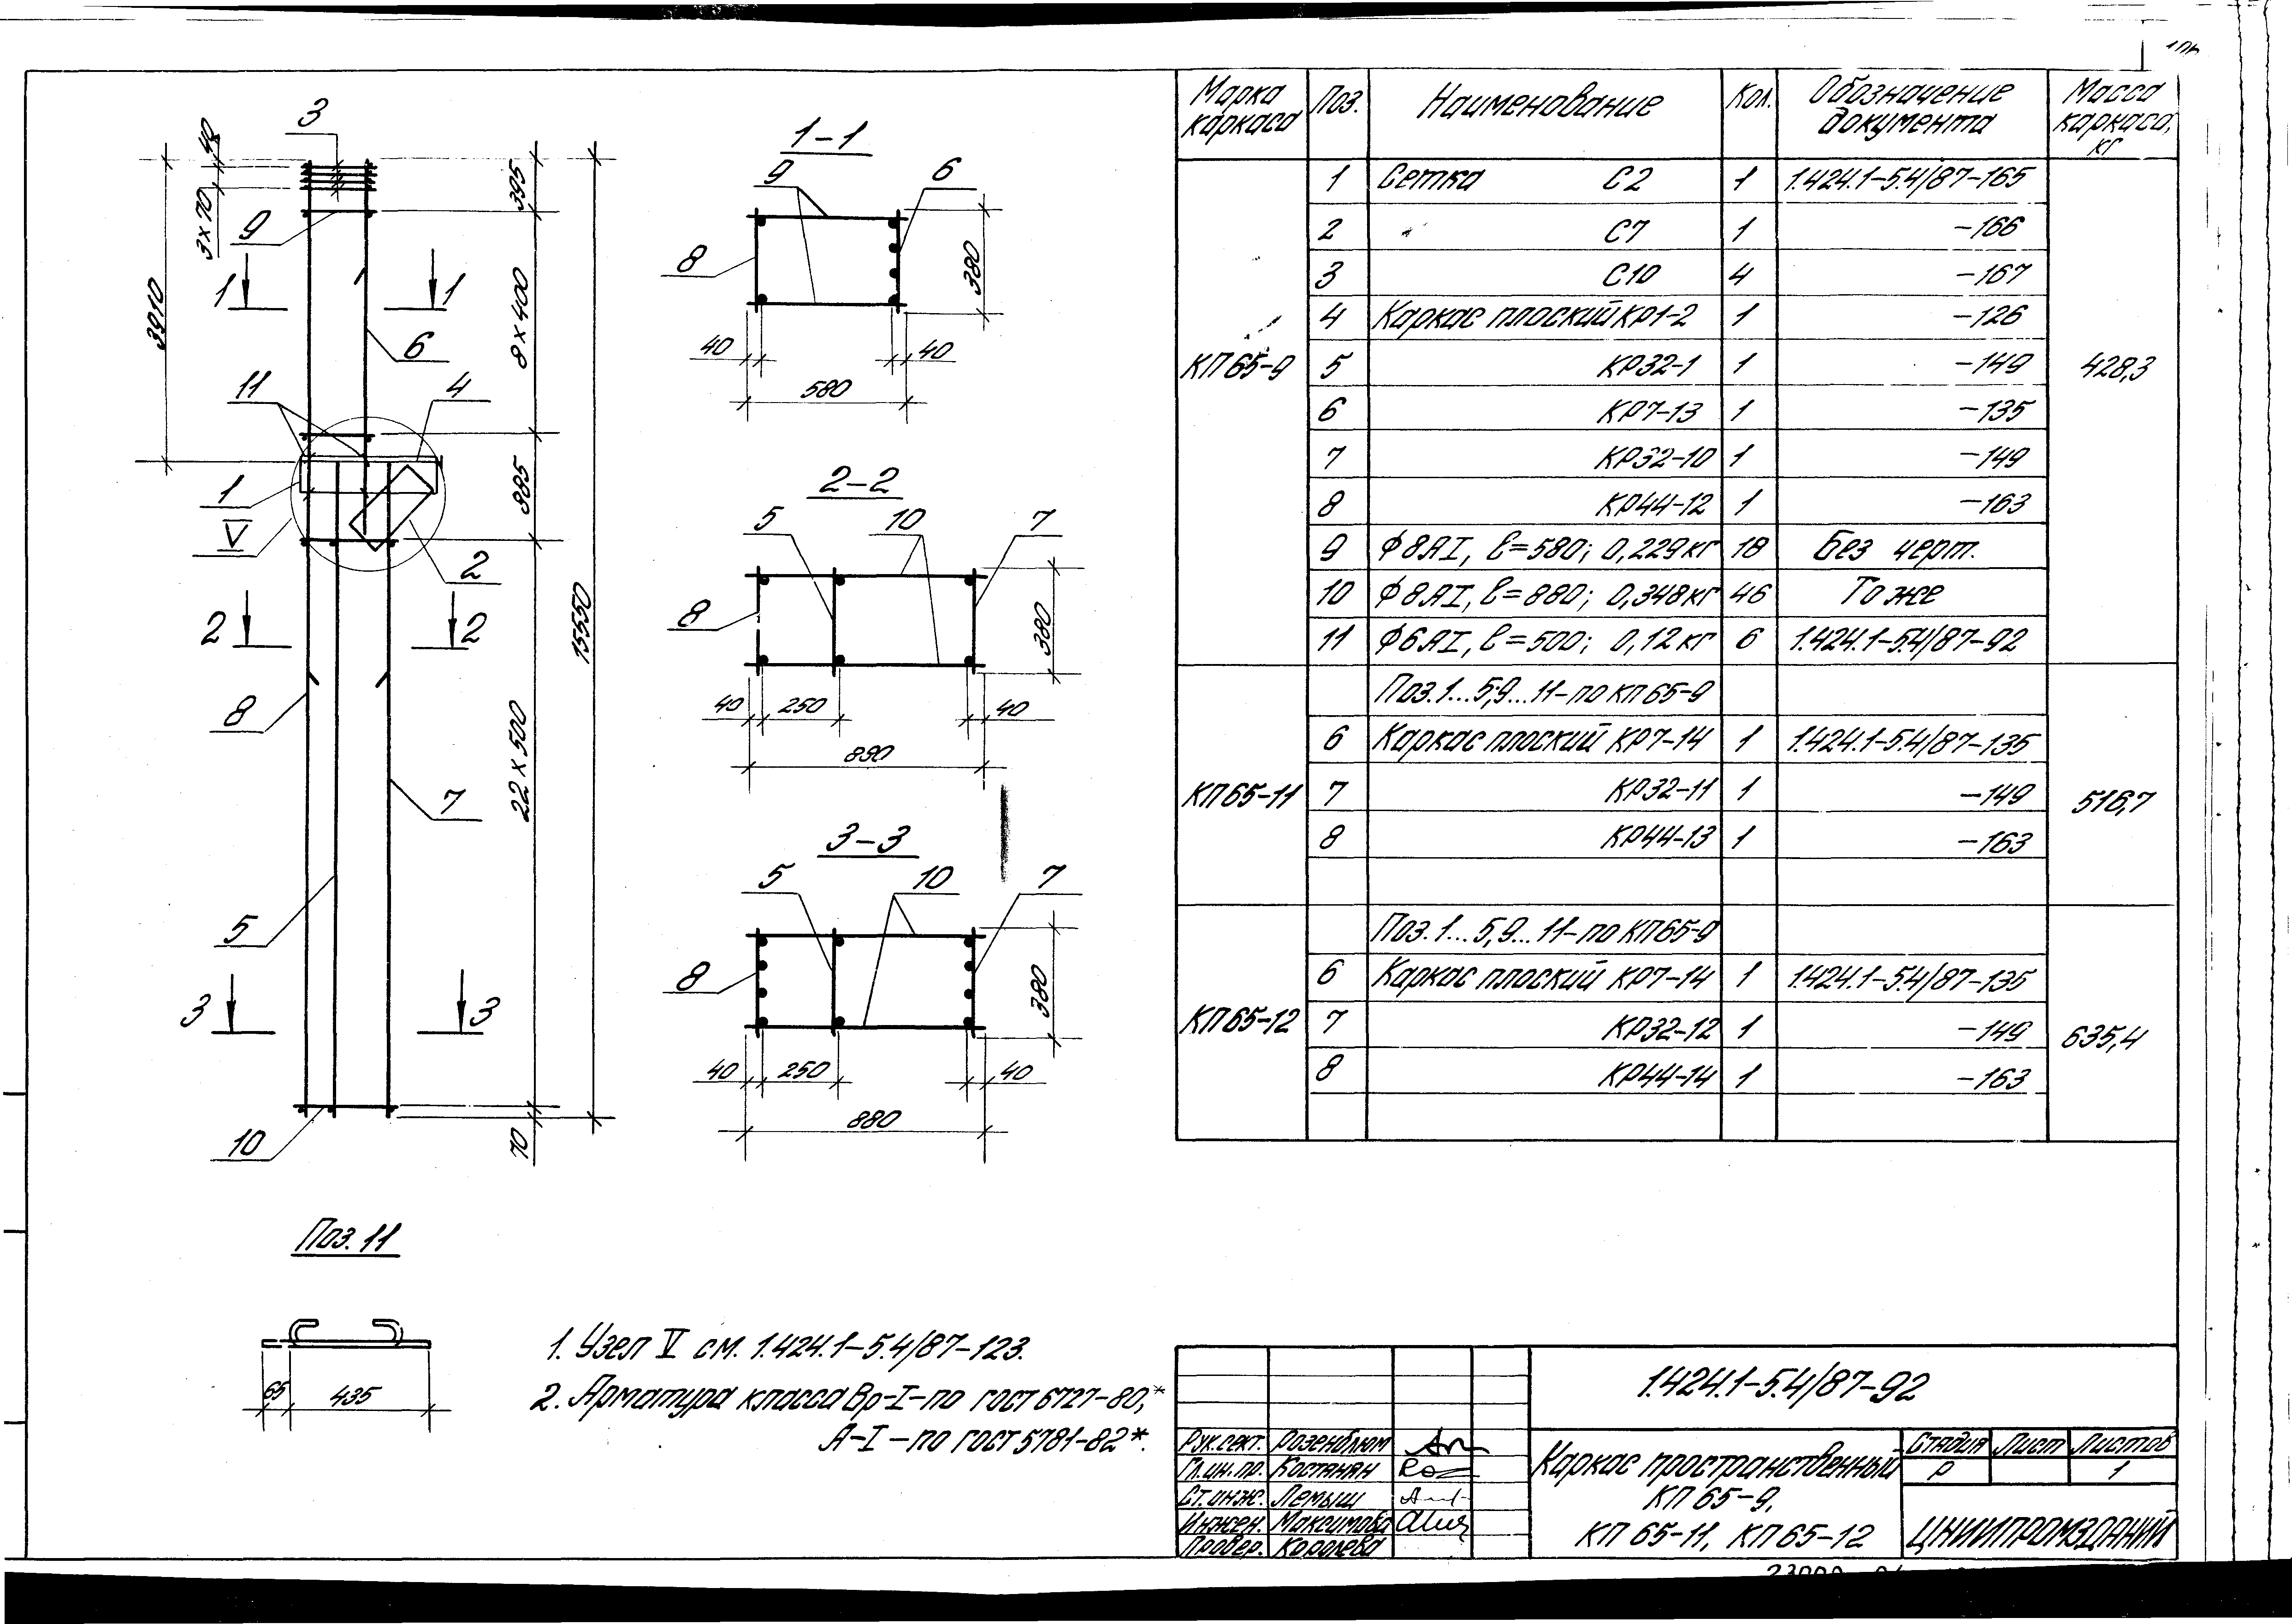 3
40
3×70
9
395
3910
1 1
6
8×400
11
4
1
V
985
2
2 2
15550
8
7
22×500
5
3 3
10
70
1-1
9
6
8
380
40
40
580
2-2
5
10
7
8
380
40
250
40
880
3-3
5
10
7
8
380
40
250
40
880
Поз. 11
65
435
1. Узел V см. 1.424.1-5.4/87-123.
2. Арматура класса Вр-I-по ГОСТ 6727-80,*
А-I-по ГОСТ 5781-82*.
Марка каркаса Поз. Наименование Кол. Обозначение документа Масса каркаса, кг
КП65-9 428,3
1 Сетка С2 1 1.424.1-5.4/87-165
2 " С7 1 -166
3 С10 4 -167
4 Каркас плоский КР1-2 1 -126
5 КР32-1 1 -149
6 КР7-13 1 -135
7 КР32-10 1 -149
8 КР44-12 1 -163
9 ф8АI, ℓ=580; 0,229кг 18 Без черт.
10 ф8АI, ℓ=880; 0,348кг 46 То же
11 ф6АI, ℓ=500; 0,12кг 6 1.424.1-5.4/87-92
КП65-11 516,7
Поз.1...5,9...11-по КП65-9
6 Каркас плоский КР7-14 1 1.424.1-5.4/87-135
7 КР32-11 1 -149
8 КР44-13 1 -163
КП65-12 635,4
Поз.1...5,9...11-по КП65-9
6 Каркас плоский КР7-14 1 1.424.1-5.4/87-135
7 КР32-12 1 -149
8 КР44-14 1 -163
1.424.1-5.4/87-92
Рук.сект. Розенблюм
Гл.ин.пр. Костанян
Ст.инж. Лемыш
Инжен. Максимова
Провер. Королева
Каркас пространственный
КП 65-9,
КП 65-11, КП 65-12
Стадия Лист Листов
Р 1
ЦНИИПРОМЗДАНИЙ